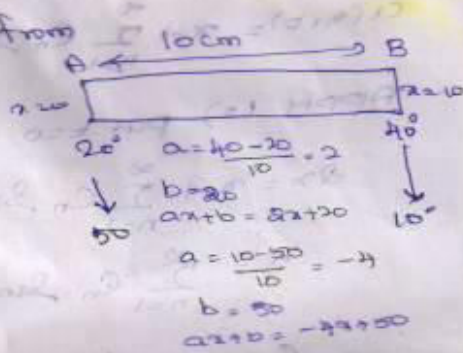 from
10cm
A B
x=0 x=10
20° 40°
a = 40-20/10 = 2
b=20
50 10°
ax+b = 2x+20
a = 10-50/10 = -4
b = 50
ax+b = -4x+50